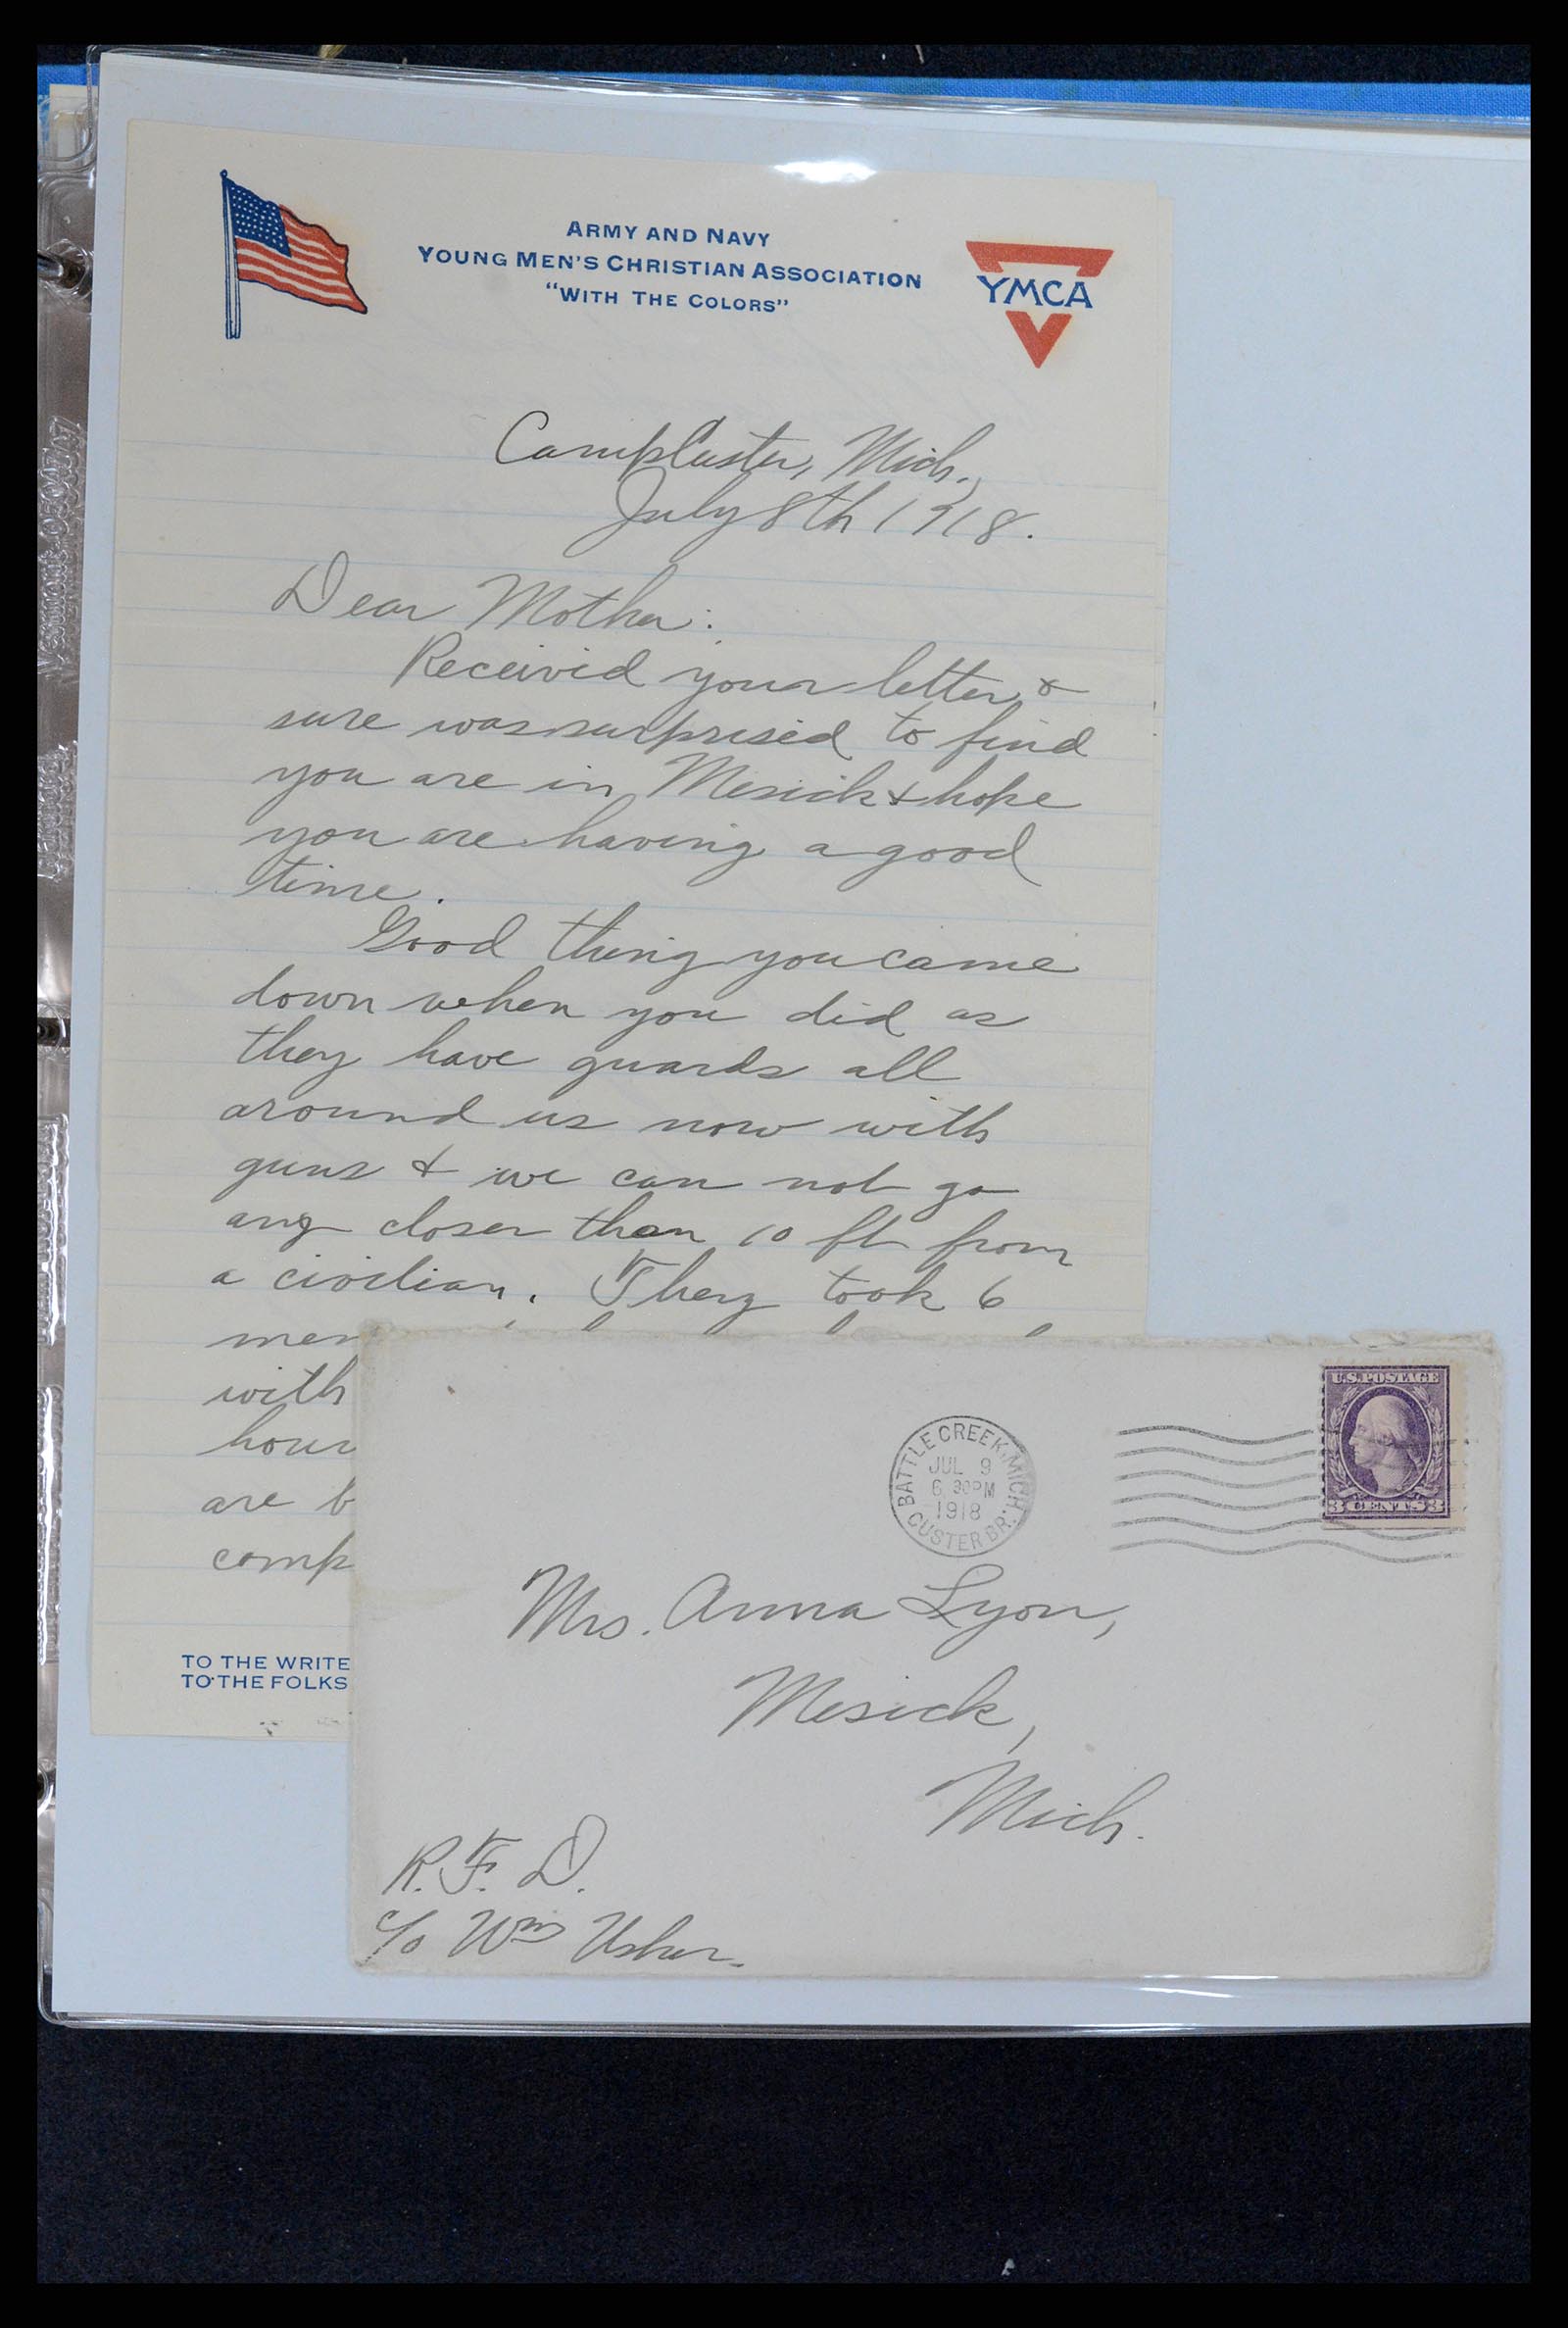 ARMY AND NAVY
YOUNG MEN'S CHRISTIAN ASSOCIATION
"WITH THE COLORS"
YMCA
Camp Custer, Mich.,
July 8th 1918.
Dear Mother:
Receivid your letter &
sure was surprised to find
you are in Mesick & hope
you are having a good
time.
Good thing you came
down when you did as
they have guards all
around us now with
guns & we can not go
any closer than 10 ft from
a civilian. They took 6
men
with
hour
are b
comp
TO THE WRITE
TO THE FOLKS
U.S. POSTAGE
3 CENTS 3
BATTLE CREEK, MICH.
JUL 9
6 30 PM
1918
CUSTER BR.
Mrs. Anna Lyon,
Mesick,
Mich.
R.F.D.
c/o Wm Usher.